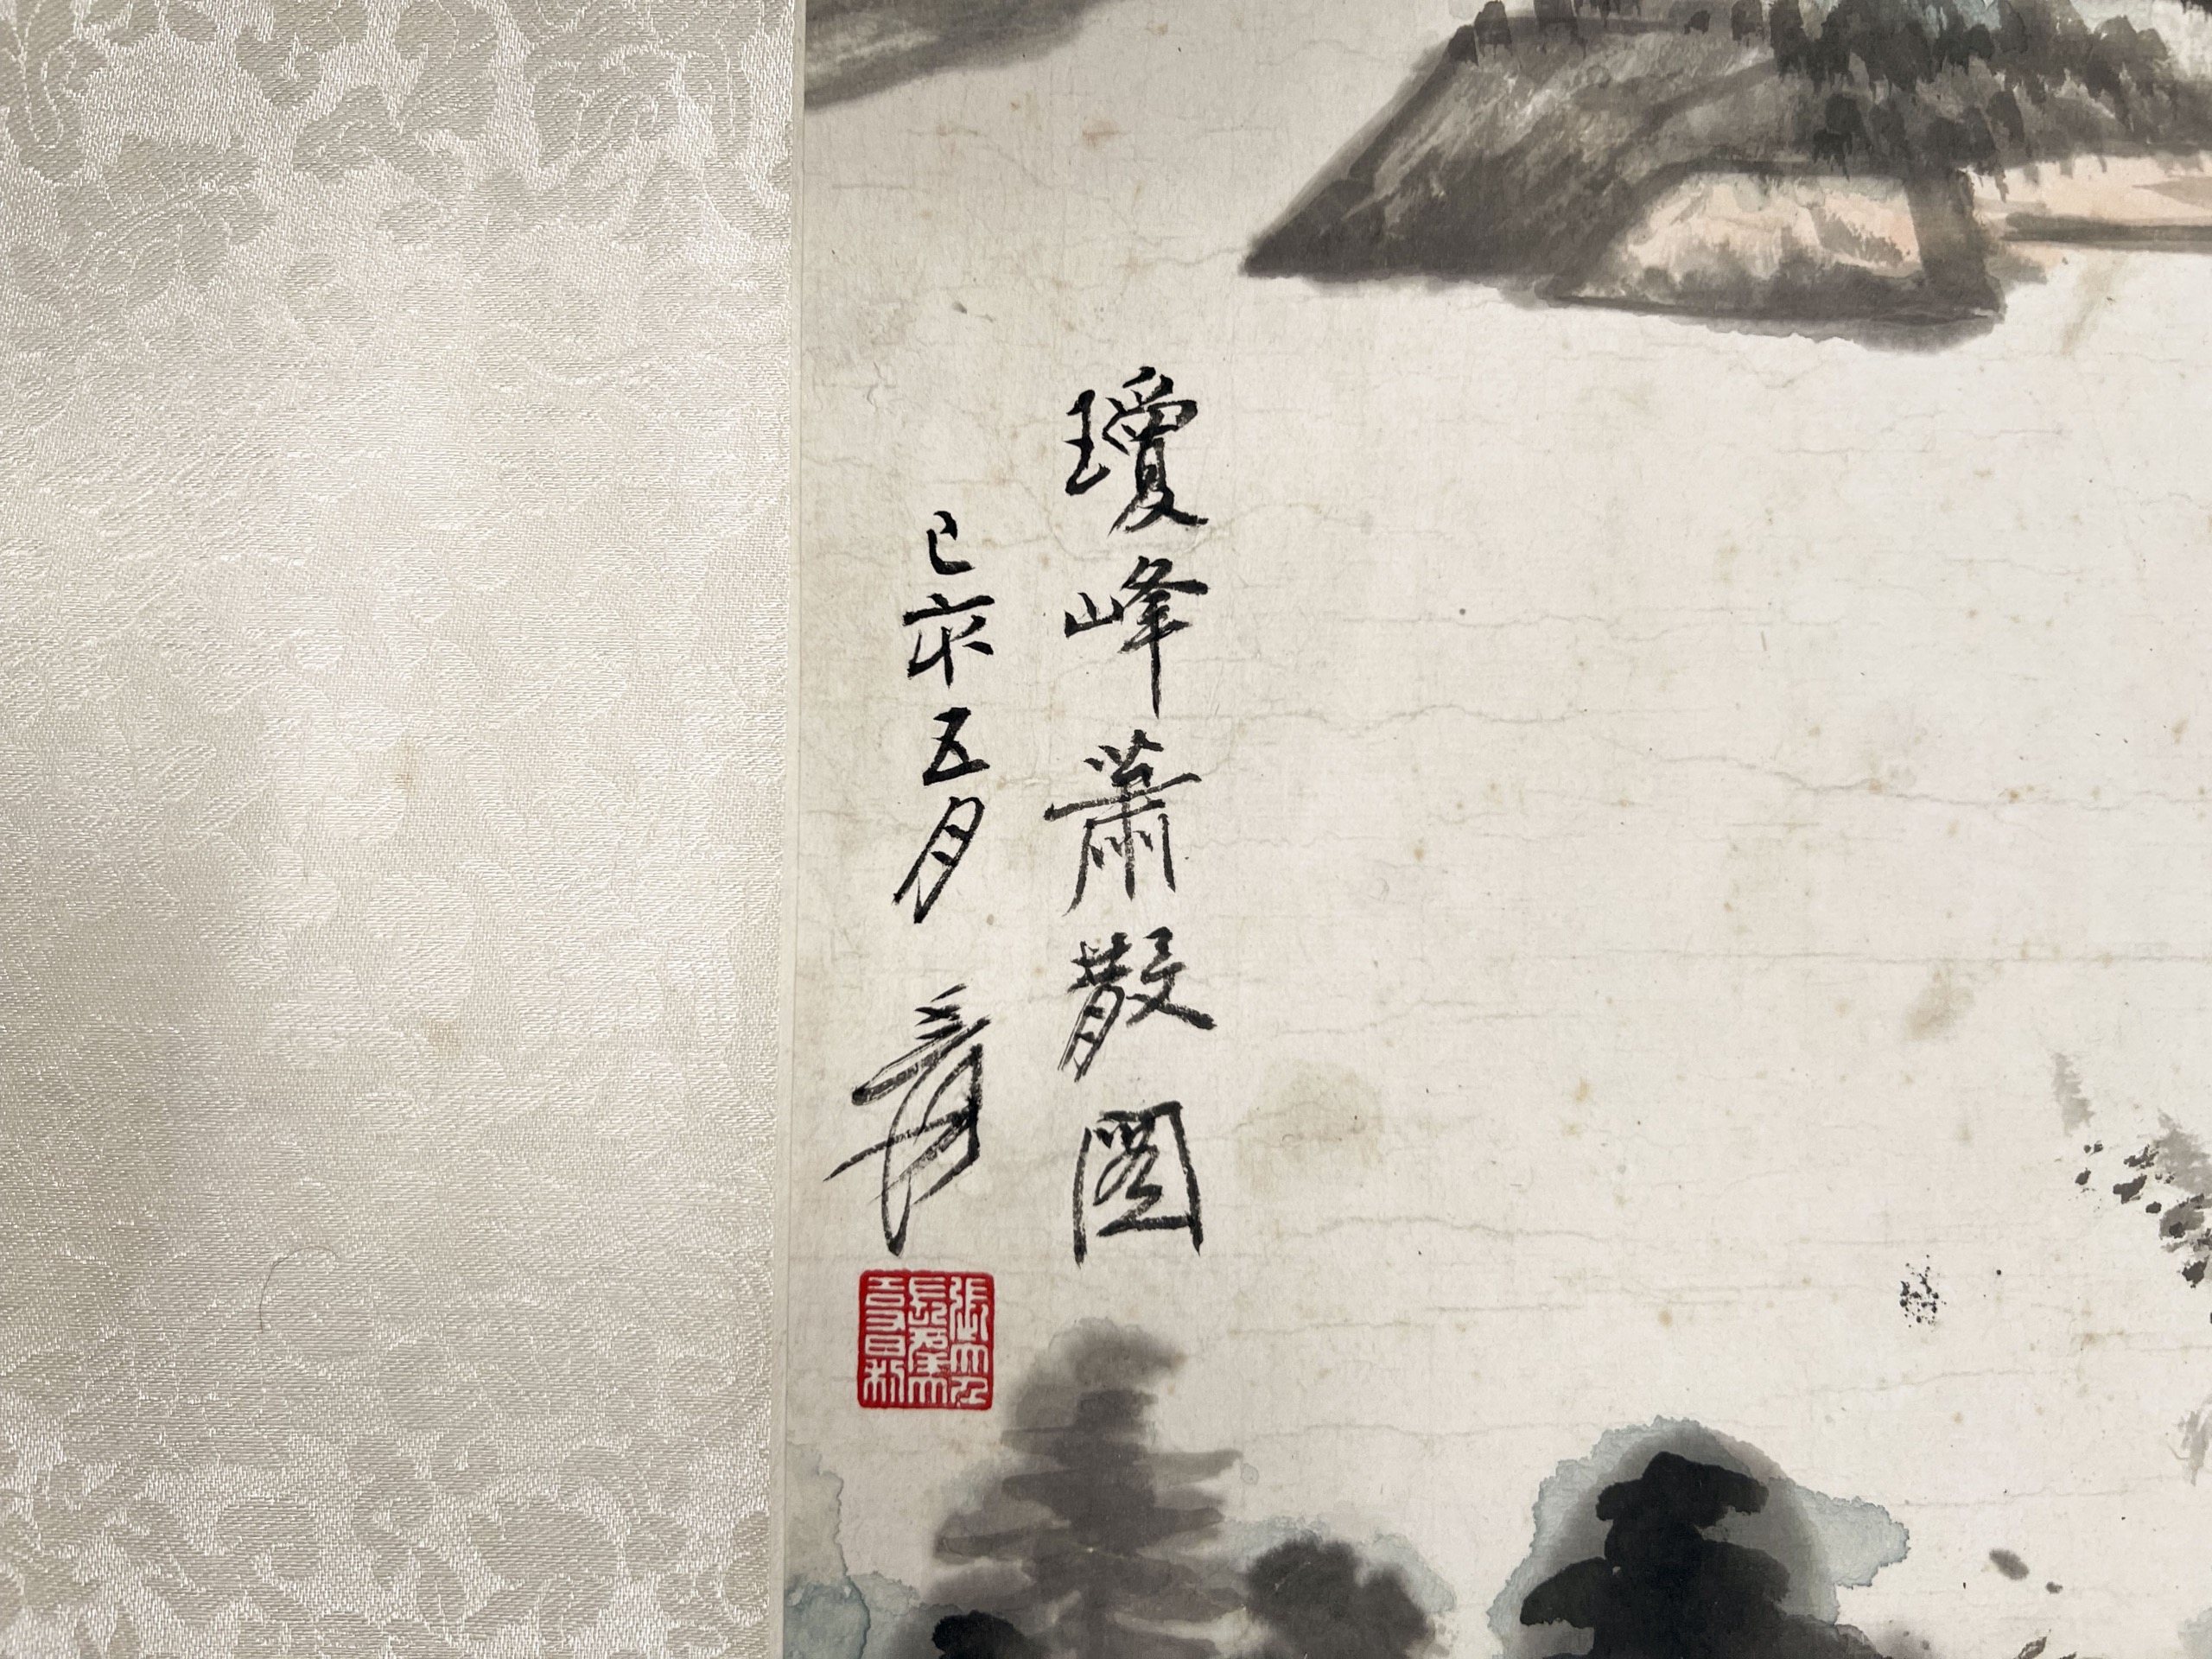 瓊峰蕭散圖
己亥五月 爰
張大千
長年大
吉又日利